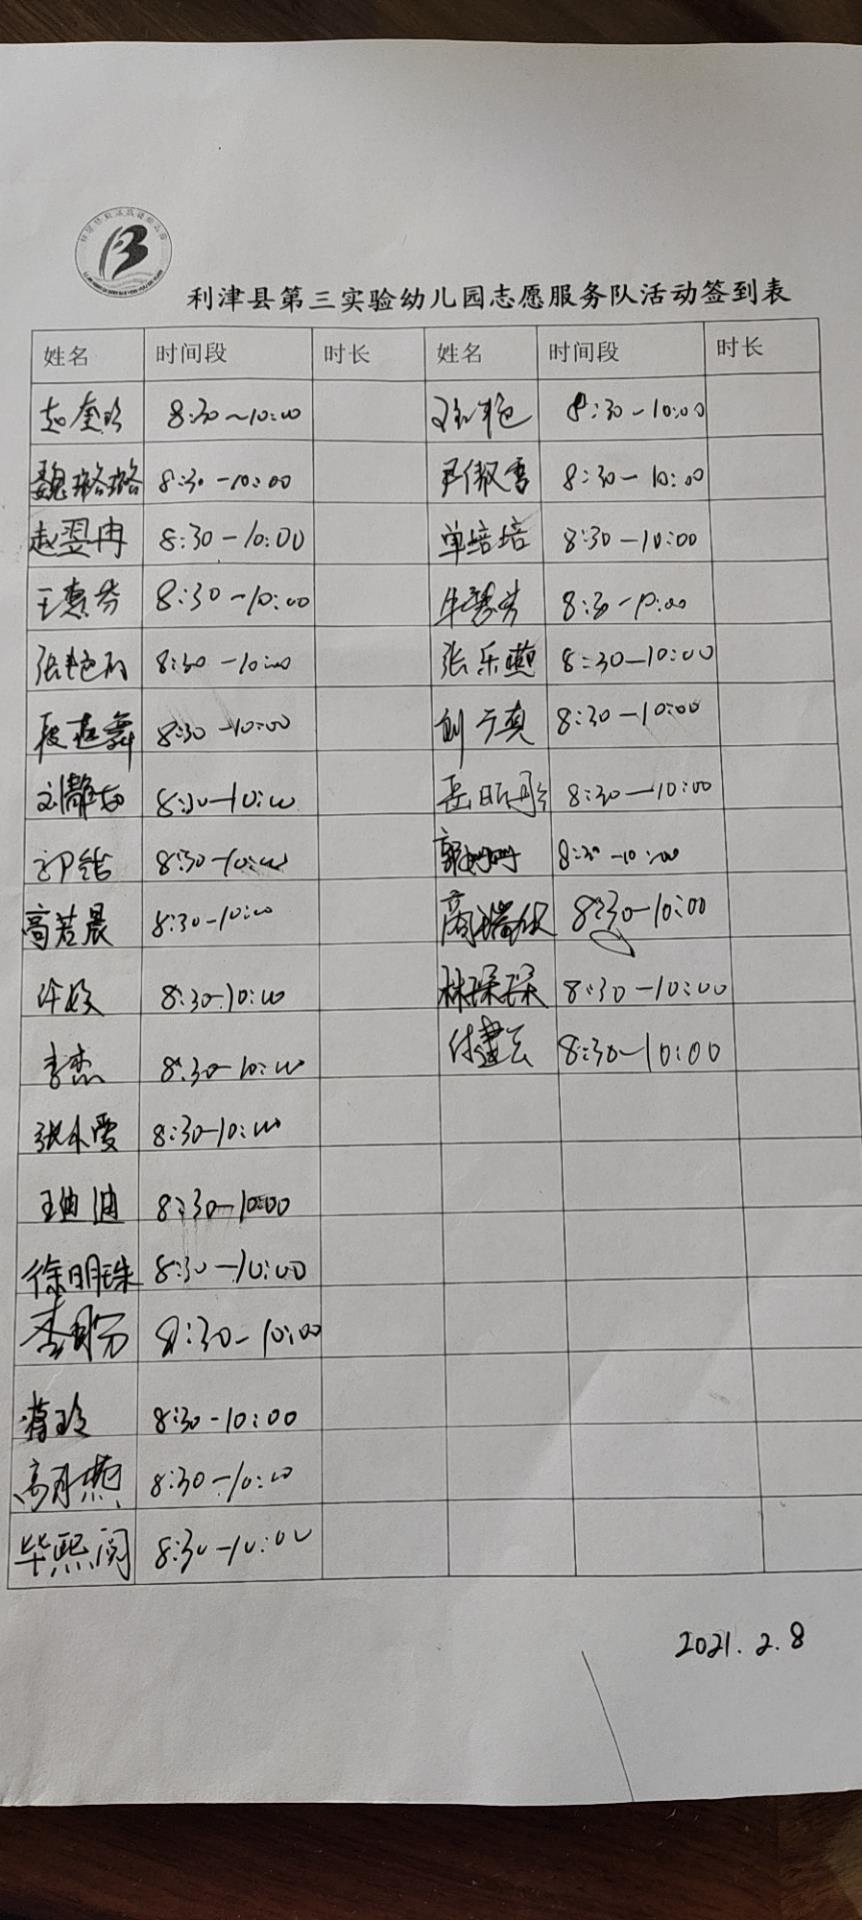 利津县第三实验幼儿园志愿服务队活动签到表
姓名 时间段 时长 姓名 时间段 时长
8:30~10:00 8:30-10:00
魏璐璐 8:30-10:00 尹俶雪 8:30-10:00
赵翌冉 8:30-10:00 单培培 8:30-10:00
王惠芬 8:30-10:00 牛慧芳 8:30-10:00
张艳丽 8:30-10:00 张乐燕 8:30-10:00
段燕舞 8:30-10:00 8:30-10:00
刘静 8:30-10:00 岳昕彤 8:30-10:00
8:30-10:00 郭 8:30-10:00
高若晨 8:30-10:00 8:30-10:00
许姣 8:30-10:00 林琛琛 8:30-10:00
李杰 8:30-10:00 付建云 8:30-10:00
张爱 8:30-10:00
王迪迪 8:30-10:00
徐明珠 8:30-10:00
8:30-10:00
蒋玲 8:30-10:00
高月燕 8:30-10:00
毕熙闵 8:30-10:00
2021.2.8